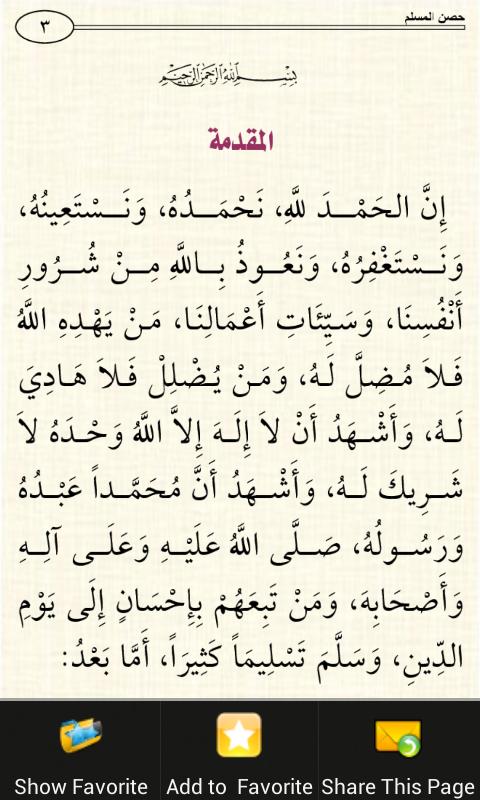 حصن المسلم
٣
بِسْمِ اللَّهِ الرَّحْمَٰنِ الرَّحِيمِ
المقدمة
إِنَّ الحَمْـدَ للَّهِ، نَحْمَـدُهُ، وَنَـسْتَعِينُهُ،
وَنَـسْتَغْفِرُهُ، وَنَعُـوذُ بِـاللَّهِ مِـنْ شُـرُورِ
أَنْفُسِنَا، وَسَيِّئَاتِ أَعْمَالِنَا، مَـنْ يَهْـدِهِ اللَّهُ
فَـلاَ مُـضِلَّ لَـهُ، وَمَـنْ يُـضْلِلْ فَـلاَ هَـادِيَ
لَـهُ، وَأَشْـهَدُ أَنْ لاَ إِلَـهَ إِلاَّ اللَّهُ وَحْـدَهُ لاَ
شَـرِيكَ لَـهُ، وَأَشْـهَدُ أَنَّ مُحَمَّـداً عَبْـدُهُ
وَرَسُـولُهُ، صَـلَّى اللَّهُ عَلَيْـهِ وَعَلَـى آلِـهِ
وَأَصْحَابِهَ، وَمَنْ تَبِعَهُمْ بِإِحْسَانٍ إِلَى يَوْمِ
الدِّينِ، وَسَلَّمَ تَسْلِيمَاً كَثِيرَاً، أَمَّا بَعْدُ:
Show Favorite
Add to Favorite
Share This Page